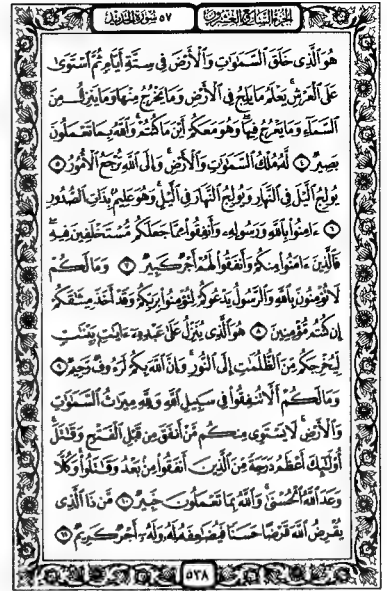 الجزء السابع والعشرون
٥٧ سورة الحديد
هُوَ ٱلَّذِى خَلَقَ ٱلسَّمَٰوَٰتِ وَٱلْأَرْضَ فِى سِتَّةِ أَيَّامٍ ثُمَّ ٱسْتَوَىٰ
عَلَى ٱلْعَرْشِ ۚ يَعْلَمُ مَا يَلِجُ فِى ٱلْأَرْضِ وَمَا يَخْرُجُ مِنْهَا وَمَا يَنزِلُ مِنَ
ٱلسَّمَآءِ وَمَا يَعْرُجُ فِيهَا ۖ وَهُوَ مَعَكُمْ أَيْنَ مَا كُنتُمْ ۚ وَٱللَّهُ بِمَا تَعْمَلُونَ
بَصِيرٌ ٤ لَّهُۥ مُلْكُ ٱلسَّمَٰوَٰتِ وَٱلْأَرْضِ ۚ وَإِلَى ٱللَّهِ تُرْجَعُ ٱلْأُمُورُ ٥
يُولِجُ ٱلَّيْلَ فِى ٱلنَّهَارِ وَيُولِجُ ٱلنَّهَارَ فِى ٱلَّيْلِ ۚ وَهُوَ عَلِيمٌۢ بِذَاتِ ٱلصُّدُورِ
٦ ءَامِنُوا۟ بِٱللَّهِ وَرَسُولِهِۦ وَأَنفِقُوا۟ مِمَّا جَعَلَكُم مُّسْتَخْلَفِينَ فِيهِ ۖ
فَٱلَّذِينَ ءَامَنُوا۟ مِنكُمْ وَأَنفَقُوا۟ لَهُمْ أَجْرٌ كَبِيرٌ ٧ وَمَا لَكُمْ
لَا تُؤْمِنُونَ بِٱللَّهِ ۙ وَٱلرَّسُولُ يَدْعُوكُمْ لِتُؤْمِنُوا۟ بِرَبِّكُمْ وَقَدْ أَخَذَ مِيثَٰقَكُمْ
إِن كُنتُم مُّؤْمِنِينَ ٨ هُوَ ٱلَّذِى يُنَزِّلُ عَلَىٰ عَبْدِهِۦٓ ءَايَٰتٍۭ بَيِّنَٰتٍ
لِّيُخْرِجَكُم مِّنَ ٱلظُّلُمَٰتِ إِلَى ٱلنُّورِ ۚ وَإِنَّ ٱللَّهَ بِكُمْ لَرَءُوفٌ رَّحِيمٌ ٩
وَمَا لَكُمْ أَلَّا تُنفِقُوا۟ فِى سَبِيلِ ٱللَّهِ وَلِلَّهِ مِيرَٰثُ ٱلسَّمَٰوَٰتِ
وَٱلْأَرْضِ ۚ لَا يَسْتَوِى مِنكُم مَّنْ أَنفَقَ مِن قَبْلِ ٱلْفَتْحِ وَقَٰتَلَ ۚ
أُو۟لَٰٓئِكَ أَعْظَمُ دَرَجَةً مِّنَ ٱلَّذِينَ أَنفَقُوا۟ مِنۢ بَعْدُ وَقَٰتَلُوا۟ ۚ وَكُلًّا
وَعَدَ ٱللَّهُ ٱلْحُسْنَىٰ ۚ وَٱللَّهُ بِمَا تَعْمَلُونَ خَبِيرٌ ١٠ مَّن ذَا ٱلَّذِى
يُقْرِضُ ٱللَّهَ قَرْضًا حَسَنًا فَيُضَٰعِفَهُۥ لَهُۥ وَلَهُۥٓ أَجْرٌ كَرِيمٌ ١١
٥٣٨